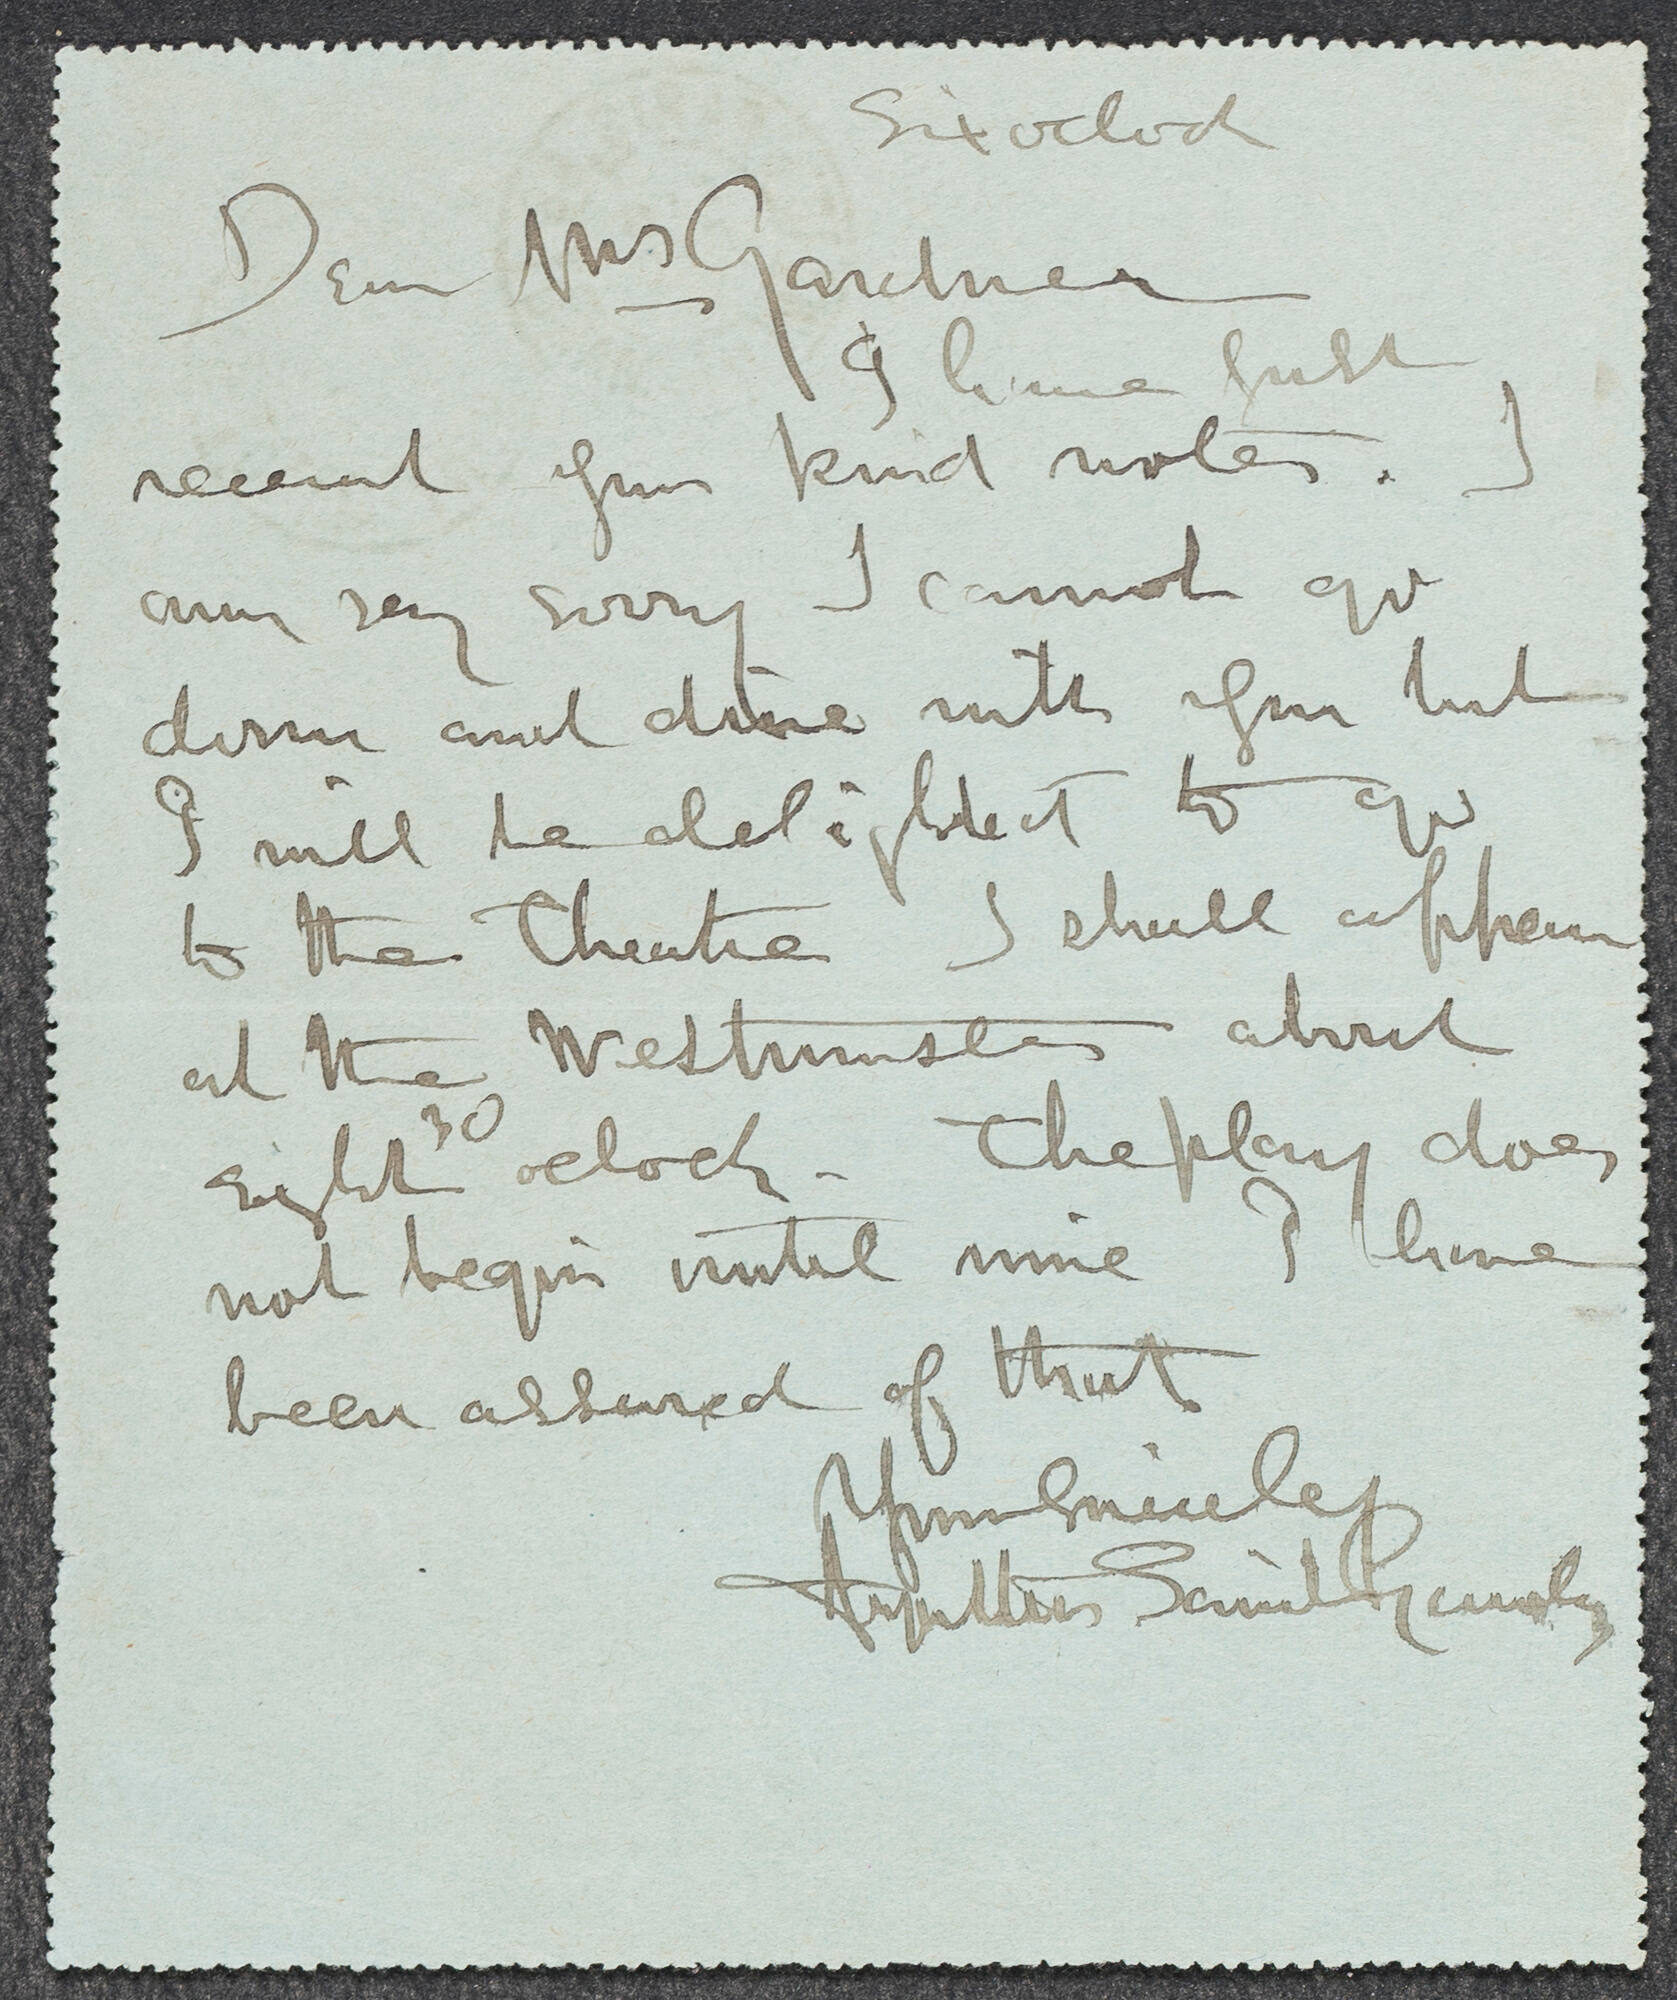 Six oclock
Dear Mrs Gardner
I have just
received your kind notes. I
am very sorry I cannot go
down and dine with you but
I will be delighted to go
to the Theatre I shall appear
at the Westminster about
eight 30 oclock - The play does
not begin until nine I have
been assured of that
Yours Sincerely
Augustus Saint Gaudens